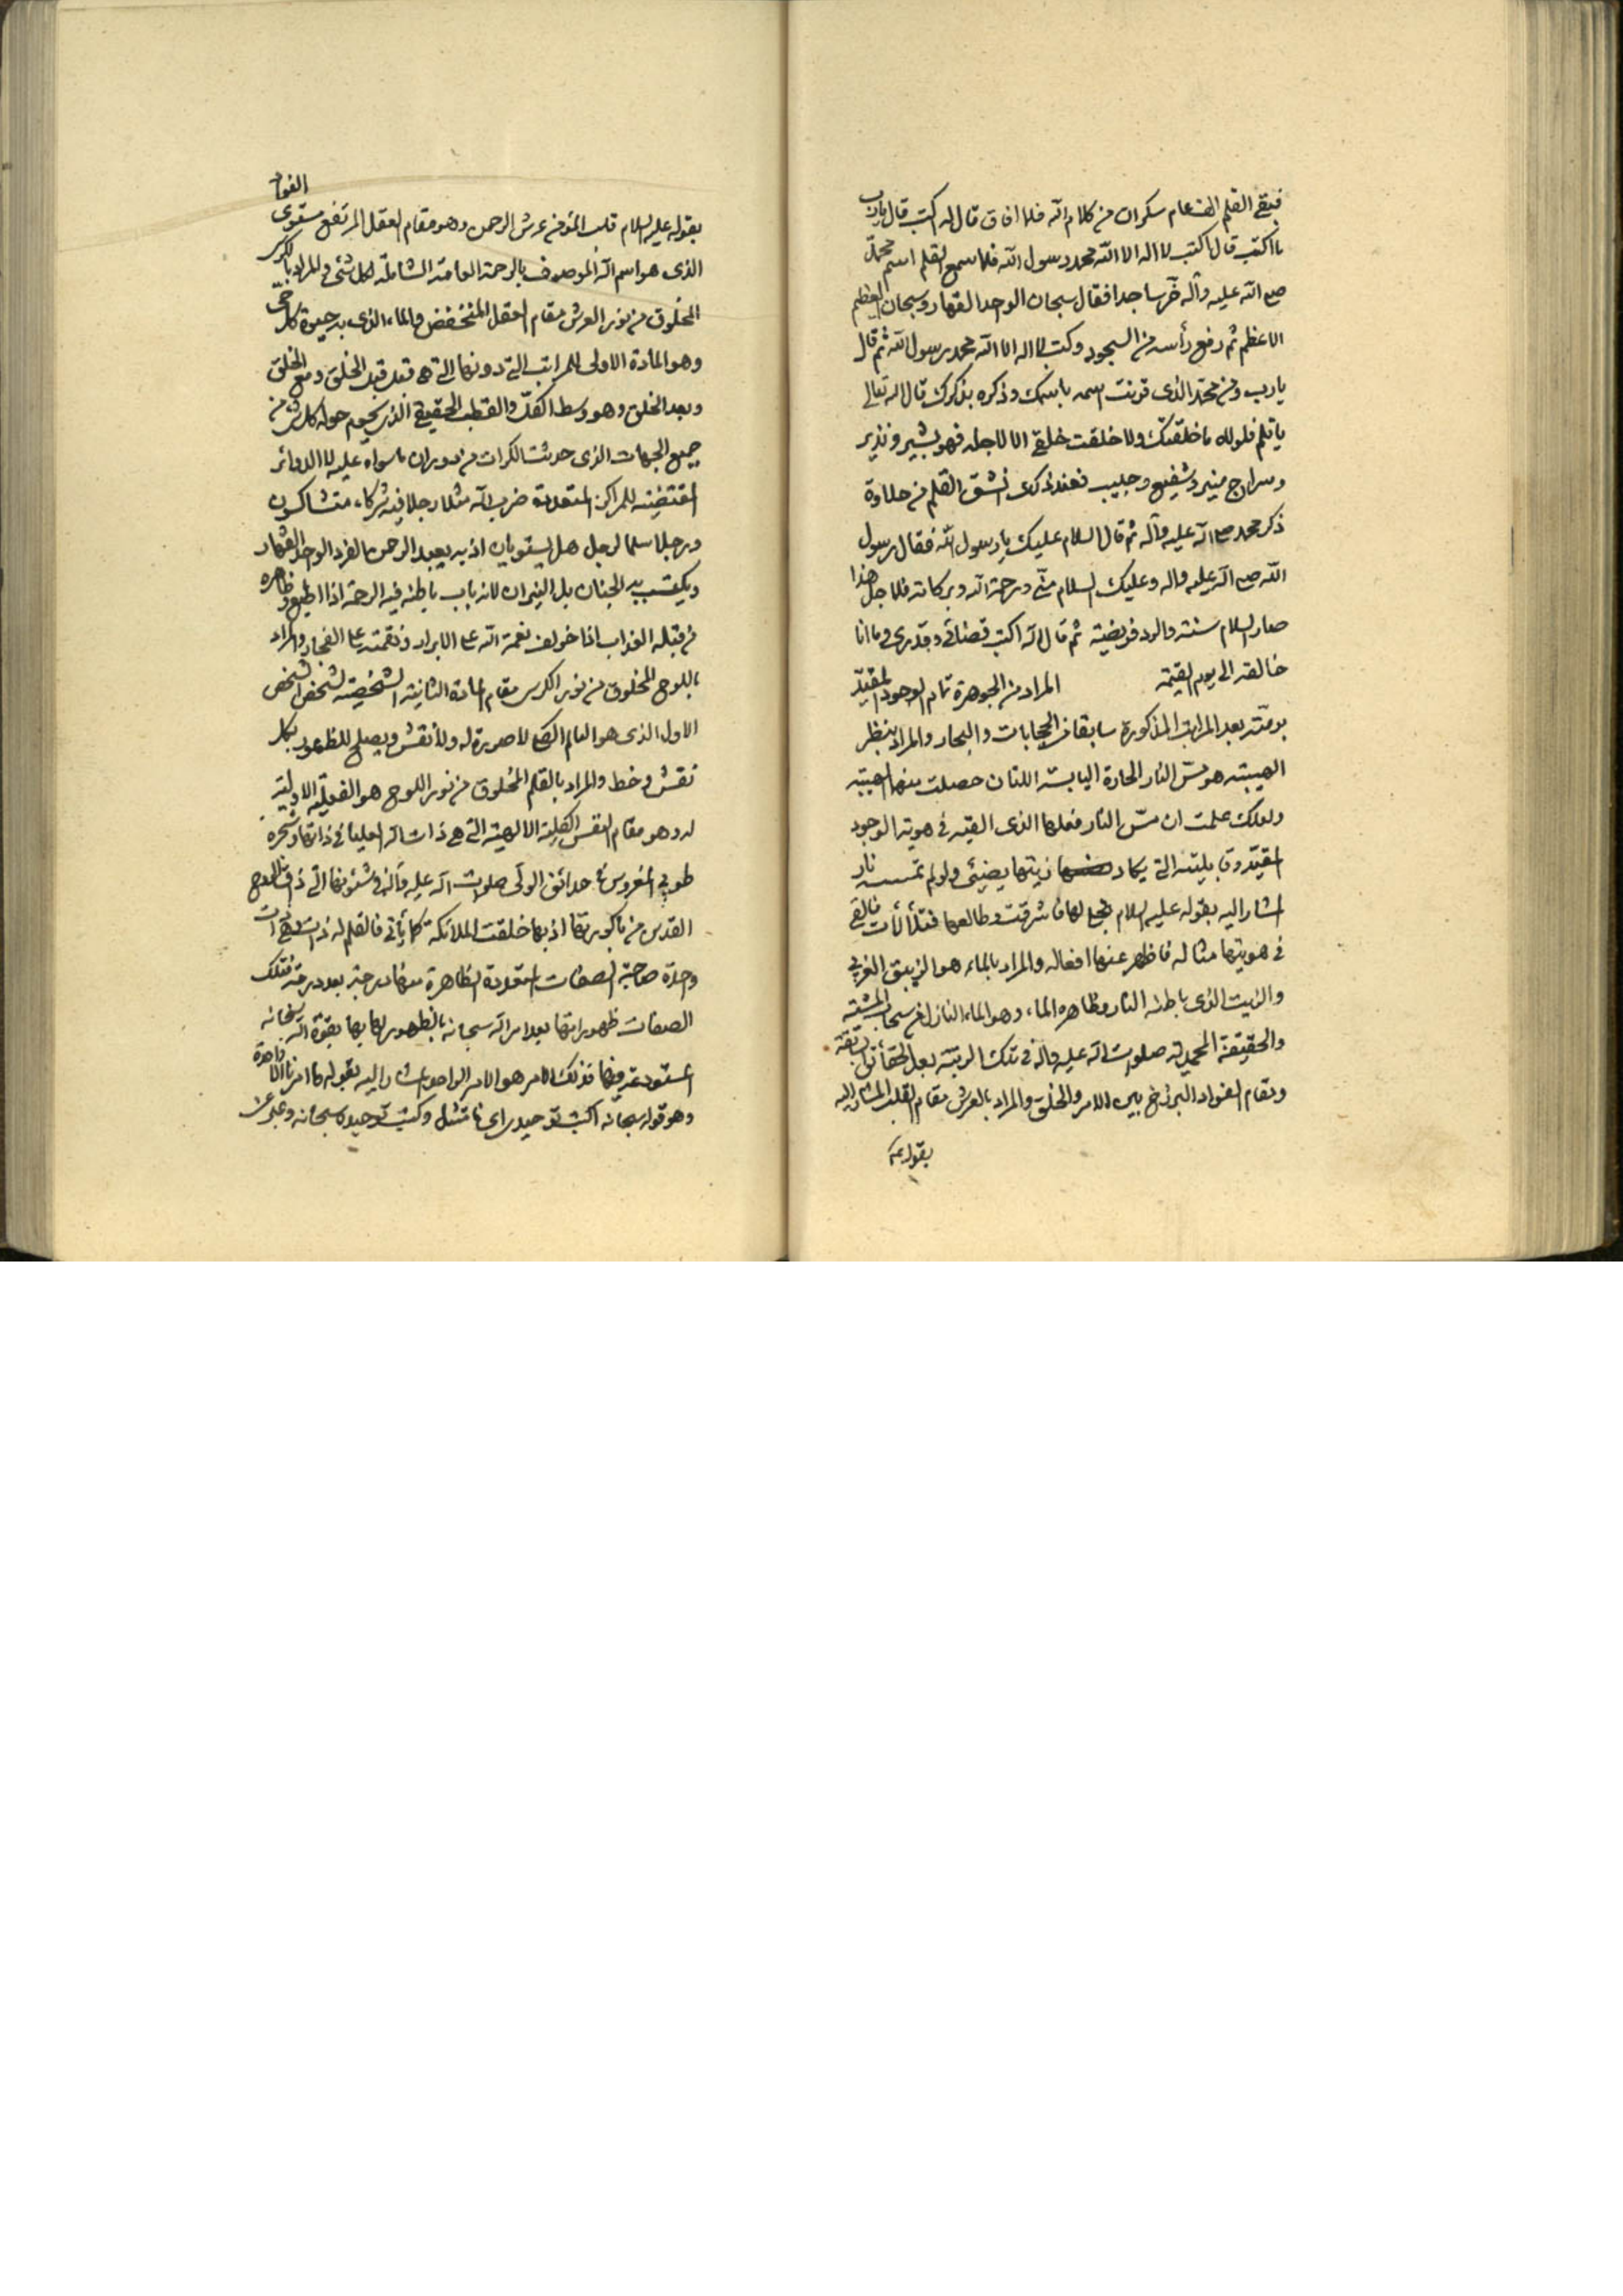 فبقي القلم الف عام سكران من كلام الله فلما افاق قال له اكتب قال يارب
ما اكتب قال اكتب لا اله الا الله محمد رسول الله فلما سمع القلم اسم محمد
صلى الله عليه وآله خر ساجدا فقال سبحان الواحد القهار وسبحان العظيم
الاعظم ثم رفع رأسه من السجود وكتب لا اله الا الله محمد رسول الله ثم قال
يا رب ومن محمد الذي قرنت اسمه باسمك وذكره بذكرك قال الله تعالى
يا قلم فلولاه ما خلقتك ولا خلقت خلقي الا لاجله فهو بشير ونذير
وسراج منير وشفيع وحبيب فعند ذلك انشق القلم من حلاوة
ذكر محمد صلى الله عليه وآله ثم قال السلام عليك يا رسول الله فقال رسول
الله صلى الله عليه واله وعليك السلام منّي ورحمة الله وبركاته فلاجل هذا
صار السلام سنة والرد فريضة ثم قال الله اكتب قضائي وقدري وما انا
خالقه الى يوم القيمة المراد من الجوهرة تمام الوجود المقيّد
برمّته بعد المراتب المذكورة سابقا من الحجابات والبحار والمراد بنظر
الهيبة هو مسّ النار الحارة اليابسة اللتان حصلت منها الهيبة
ولعلك علمت ان مسّ النار فعلها الذي القته في هوية الوجود
المقيّد وقابليته التي يكاد زيتها يضيئ ولو لم تمسسه نار
المشار اليه بقوله عليه السلام تجلى لها فاشرقت وطالعها فتلألأت فالقى
في هويتها مثاله فاظهر عنها افعاله والمراد بالماء هو الزيبق الغربي
والزيت الذي باطنه النار وظاهره الماء وهو الماء النازل من سحاب المشية
والحقيقة المحمدية صلوات الله عليه وآله في تلك الرتبة بعد الحقائق السابقة
ومقام الفواد البرزخ بين الامر والخلق والمراد بالعرش مقام القلب المشار اليه
بقوله عليه
الفواد
بقوله عليه السلام قلب المؤمن عرش الرحمن وهو مقام العقل المرتفع مستوى
الذي هو اسم الله الموصوف بالرحمة العامة الشاملة لكل شئ والمراد بالكرسي
المخلوق من نور العرش مقام العقل المنخفض والماء الذي به حيوة كل حي
وهو المادة الاولى للمراتب التي دونها التي هي قبل الخلق ومع الخلق
وبعد الخلق وهو وسط الكل والقطب الحقيقي الذي يحوم حوله كل شئ من
جميع الجهات الذي حدثت الكرات من دوران ما سواه عليه لا الدوائر
المقتضية للمراكز المتعددة ضرب الله مثلا رجلا فيه شركاء متشاكسون
ورجلا سلما لرجل هل يستويان اذ به يعبد الرحمن الفرد الواحد القهار
ويكتسب به الجنان بل النيران لانه باب باطنه فيه الرحمة اذا اطيع وظاهره
من قبله العذاب اذا خولف نعمة الله على الابرار ونقمته على الفجار والمراد
باللوح المخلوق من نور الكرسي مقام المادة الثانية الشخصية لشخص الشخص
الاول الذي هو العام الصالح لا صورة له ولا نقش ويصلح للظهور بكل
نقش وخط والمراد بالقلم المخلوق من نور اللوح هو الفعلية الاولية
له وهو مقام النفس الكلية الالهية التي هي ذات الله العليا في ذاتها وشجرة
طوبى المغروس في حدائق الولي صلوات الله عليه وآله وشئونها التي ذاق الروح
القدس من باكورتها اذ بها خلقت الملائكة كما يأتي فالقلم له ذات وهي ذات
واحدة صاحبة الصفات المتعددة الظاهرة منها درجة بعد درجة فتلك
الصفات ظهوراتها بعد امر الله سبحانه بالظهور لها بها بقوة الله سبحانه
المستودعة فيها فذلك الامر هو الامر الواحد المشار اليه بقوله وما امرنا الا واحدة
وهو قوله سبحانه اكتب توحيدي اي فامتثل وكتب توحيده سبحانه وعبر عن